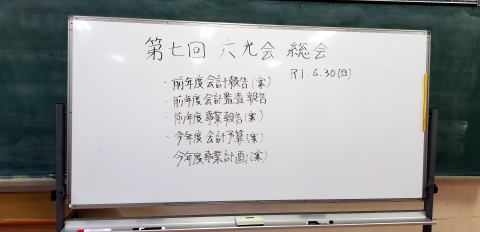 第七回 六光会 総会
R1.6.30(日)
・前年度会計報告(案)
・前年度会計監査報告
・前年度事業報告(案)
・今年度会計予算(案)
今年度事業計画(案)